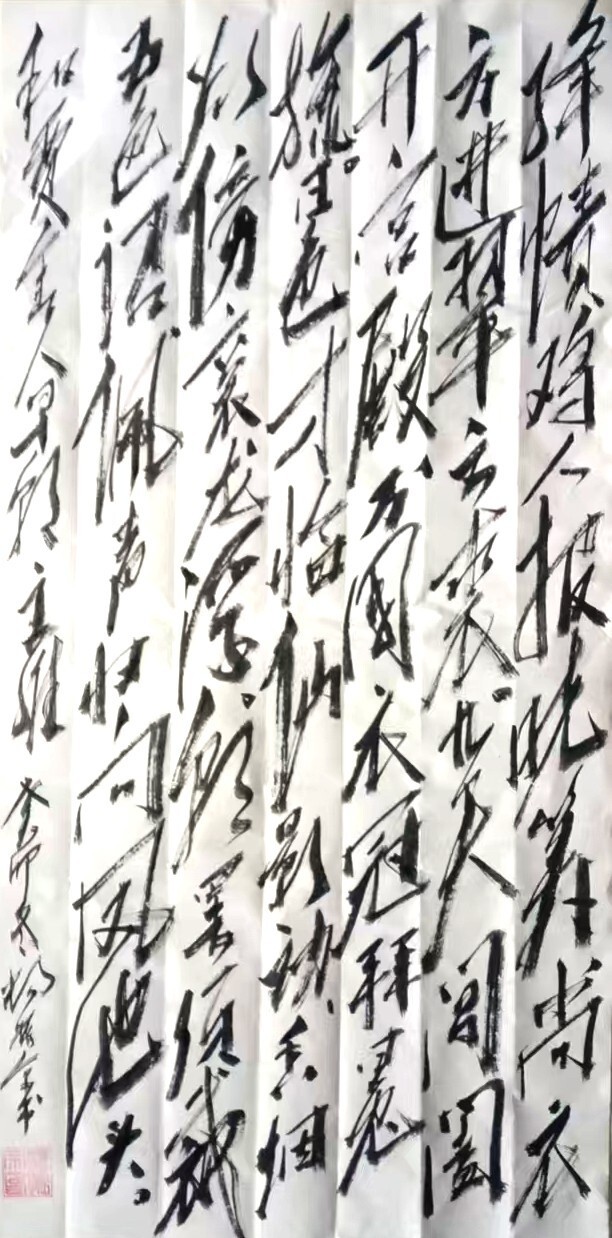 绛帻鸡人报晓筹尚衣
方进翠云裘九天閶闔
开宫殿万國衣冠拜冕
旒日色才临仙影动香烟
欲傍衮龙浮朝罢须裁
五色诏佩声归向凤池头
和贾舍人早朝 王维